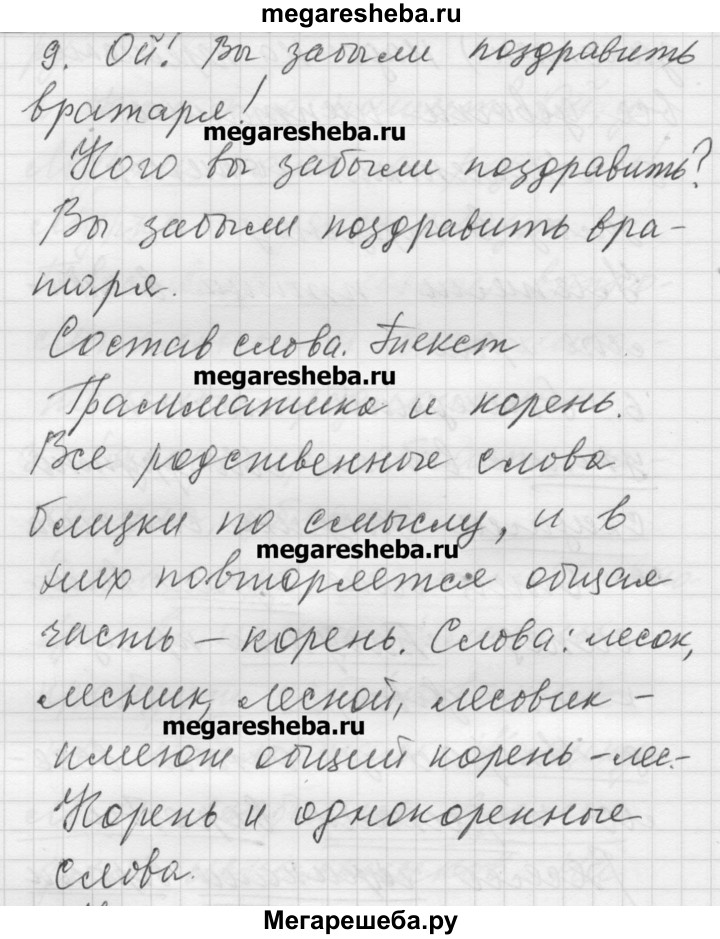 megaresheba.ru
9. Ой! Вы забыли поздравить
вратаря!
megaresheba.ru
Кого вы забыли поздравить?
Вы забыли поздравить вра-
таря.
Состав слова. Текст
megaresheba.ru
Грамматика и корень.
Все родственные слова
близки по смыслу, и в
megaresheba.ru
них повторяется общая
часть – корень. Слова: лесок,
лесник, лесной, лесовик –
megaresheba.ru
имеют общий корень -лес-
Корень и однокоренные
слова.
Мегарешеба.ру